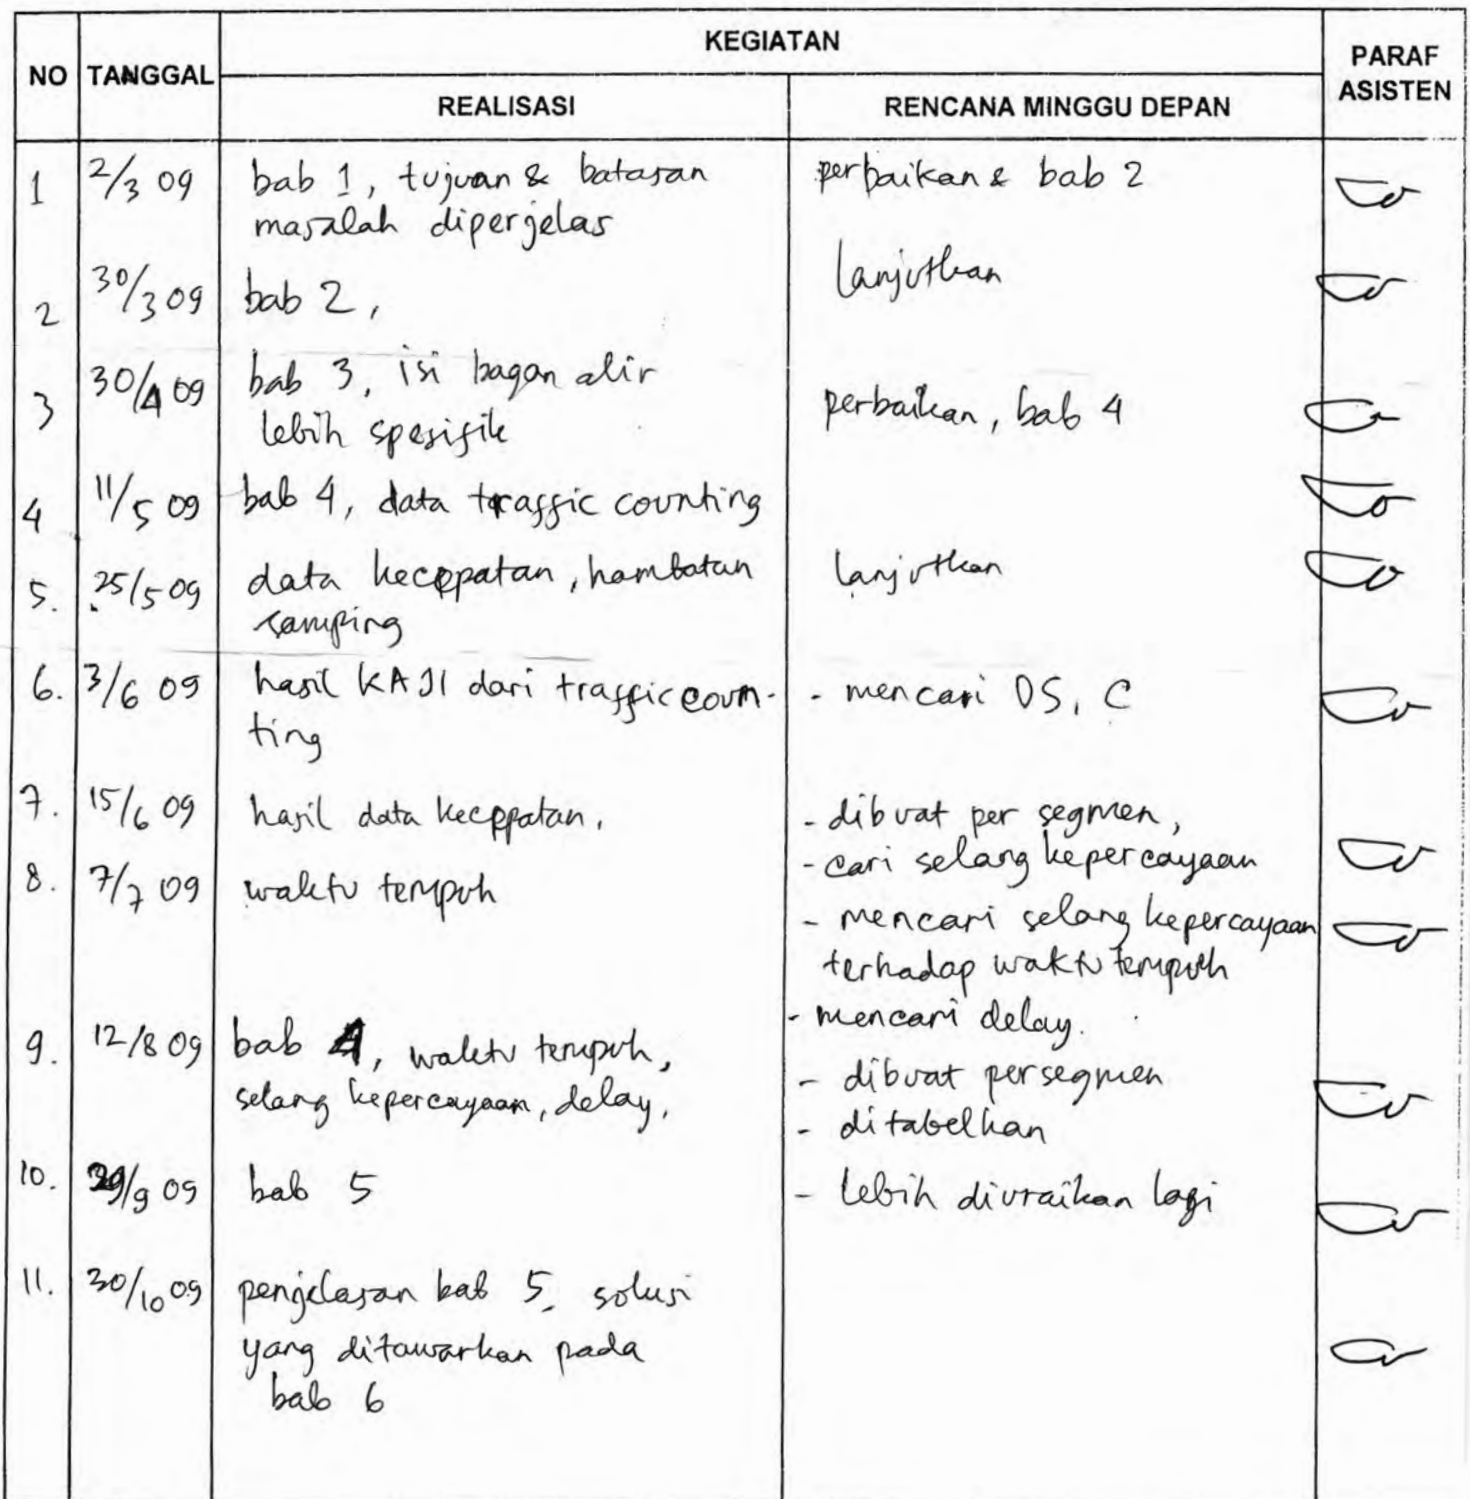 KEGIATAN
NO TANGGAL PARAF ASISTEN
REALISASI RENCANA MINGGU DEPAN
1 2/3 09 bab 1, tujuan & batasan perbaikan & bab 2
masalah diperjelas
2 30/3 09 bab 2, lanjutkan
3 30/4 09 bab 3, isi bagan alir
lebih spesifik perbaikan, bab 4
4 11/5 09 bab 4, data traffic counting
5. 25/5 09 data kecepatan, hambatan lanjutkan
samping
6. 3/6 09 hasil KAJI dari traffic coun- - mencari DS, C
ting
7. 15/6 09 hasil data kecepatan, - dibuat per segmen,
- cari selang kepercayaan
8. 7/7 09 waktu tempuh
- mencari selang kepercayaan
terhadap waktu tempuh
- mencari delay.
9. 12/8 09 bab 4, waktu tempuh, - dibuat persegmen
selang kepercayaan, delay, - ditabelkan
10. 29/9 09 bab 5 - lebih diuraikan lagi
11. 30/10 09 penjelasan bab 5, solusi
yang ditawarkan pada
bab 6